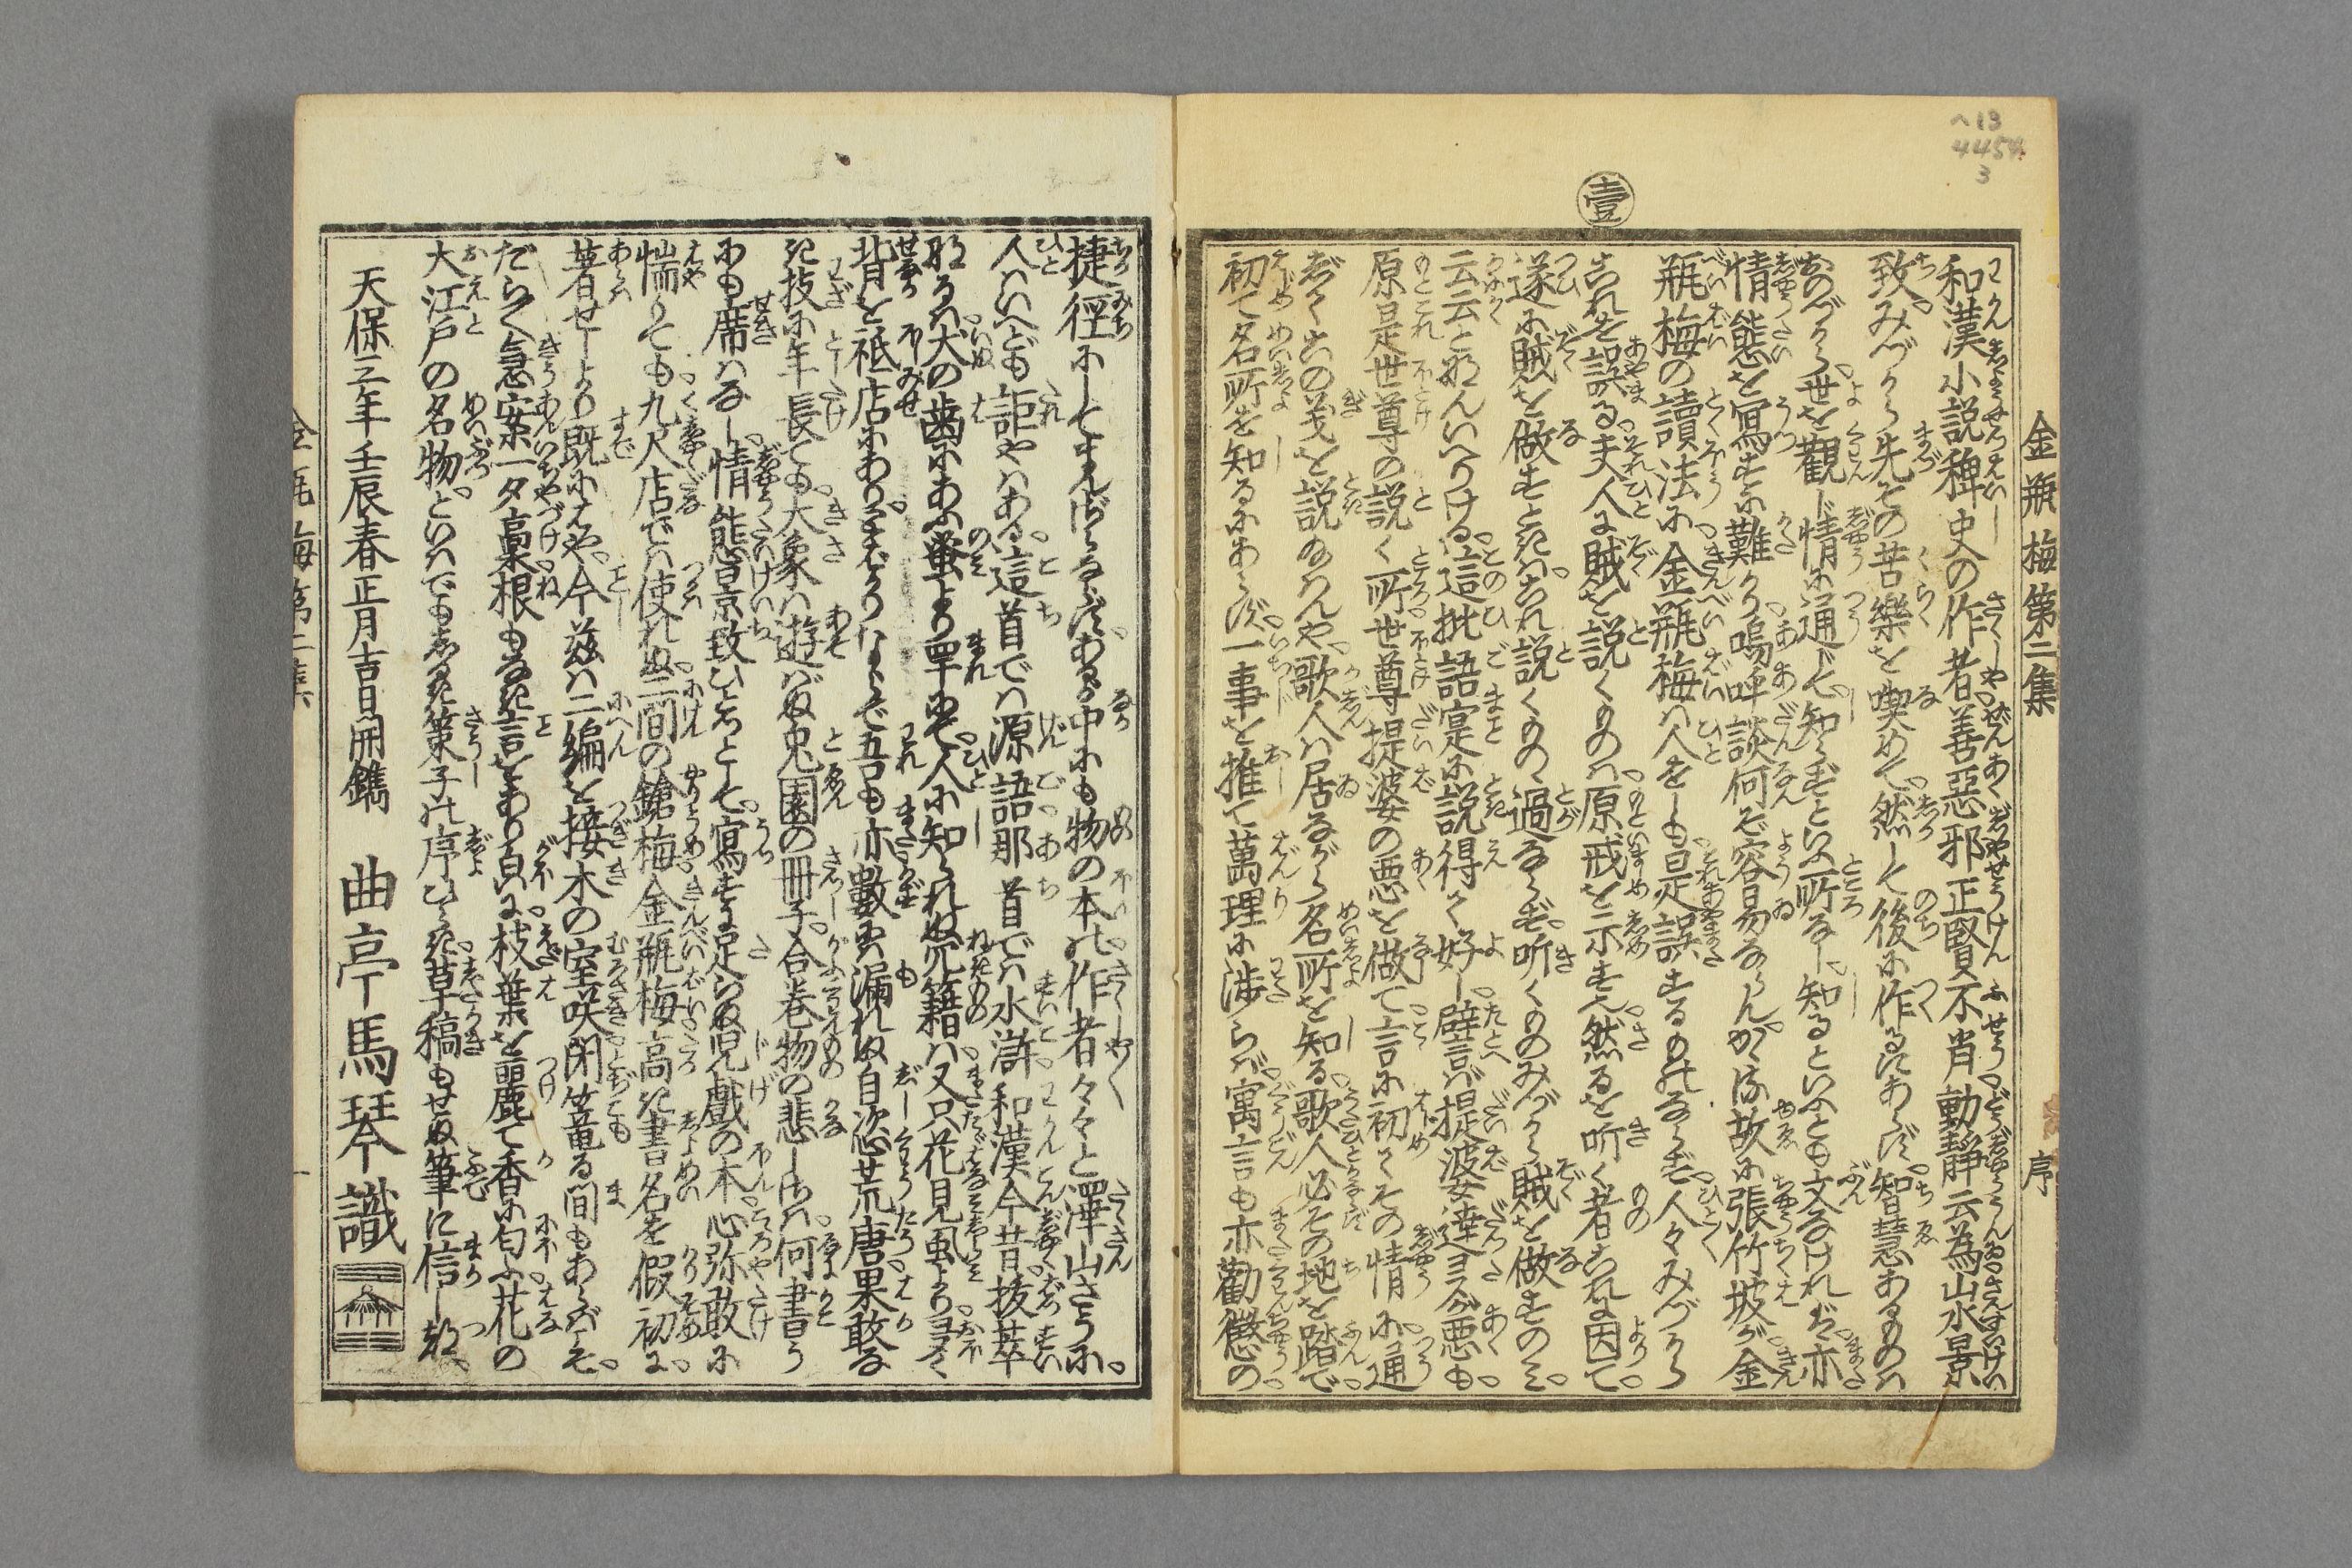 へ13
4454
3
壹
金瓶梅第二集 序
和漢小説稗史の作者善惡邪正賢不肖動靜云為山水景
致みづから先その苦樂を喫めて然して後に作るにあらず智慧あるものハ
おのづから世を觀じ情に通じて知らずといふ所なし知るといへども文なけれバ亦
情態を寫すに難かり嗚呼談何ぞ容易ならんかゝる故に張竹坡が金
瓶梅の讀法に金瓶梅ハ人をしも是誤するものならず人々みづから
これを誤る夫人に賊を説くものハ原戒を示す也然るを听く者これに因て
遂に賊を做すときハこれ説くものゝ過ならず听くものみづから賊を做すのミ
云云となんいへりける這批語寔に説得て好し譬言バ提婆達多が悪も
原是世尊の説く所世尊提婆の悪を做て言に初てその情に通
ずてふの義を説ゐけんや歌人ハ居ながら名所を知る歌人必その地を踏で
初て名所を知るにあらず一事を推て萬理に渉らバ寓言も亦勸懲の
捷徑にしてすんばあるべからずあるが中にも物の本の作者々々と澤山さうに
人ハいへども詎やハある這首でハ源語那首でハ水滸和漢今昔抜萃
なるハ犬の歯にあふ蚤より罕にて人に知られぬ冗籍ハ又只花見虱より多く
背を祗店にありすばかりならで五も亦數にハ漏れぬ自恣荒唐果敢な
き技に年長ても大象ハ遊バぬ兎園の冊子合巻物の悲しさハ何書う
にも席ハなし情態景致ひとつとして寫すに足らぬ児戯の本心弥敢に
惴りても九尺店でハ使れぬ二間の鎗梅金瓶梅高き書名を假初に
著せしより既にはや今茲ハ二編を接木の室咲閉篭る間もあらバこそ
だらく急案一夕藁根もなき言をあり貞に枝葉を麗て香に匂ふ花の
大江戸の名物といハでもしるき策子の序ひらき草稿もせぬ筆に信しつ
天保三年壬辰春正月吉日開鐫 曲亭馬琴識
金瓶梅第二集